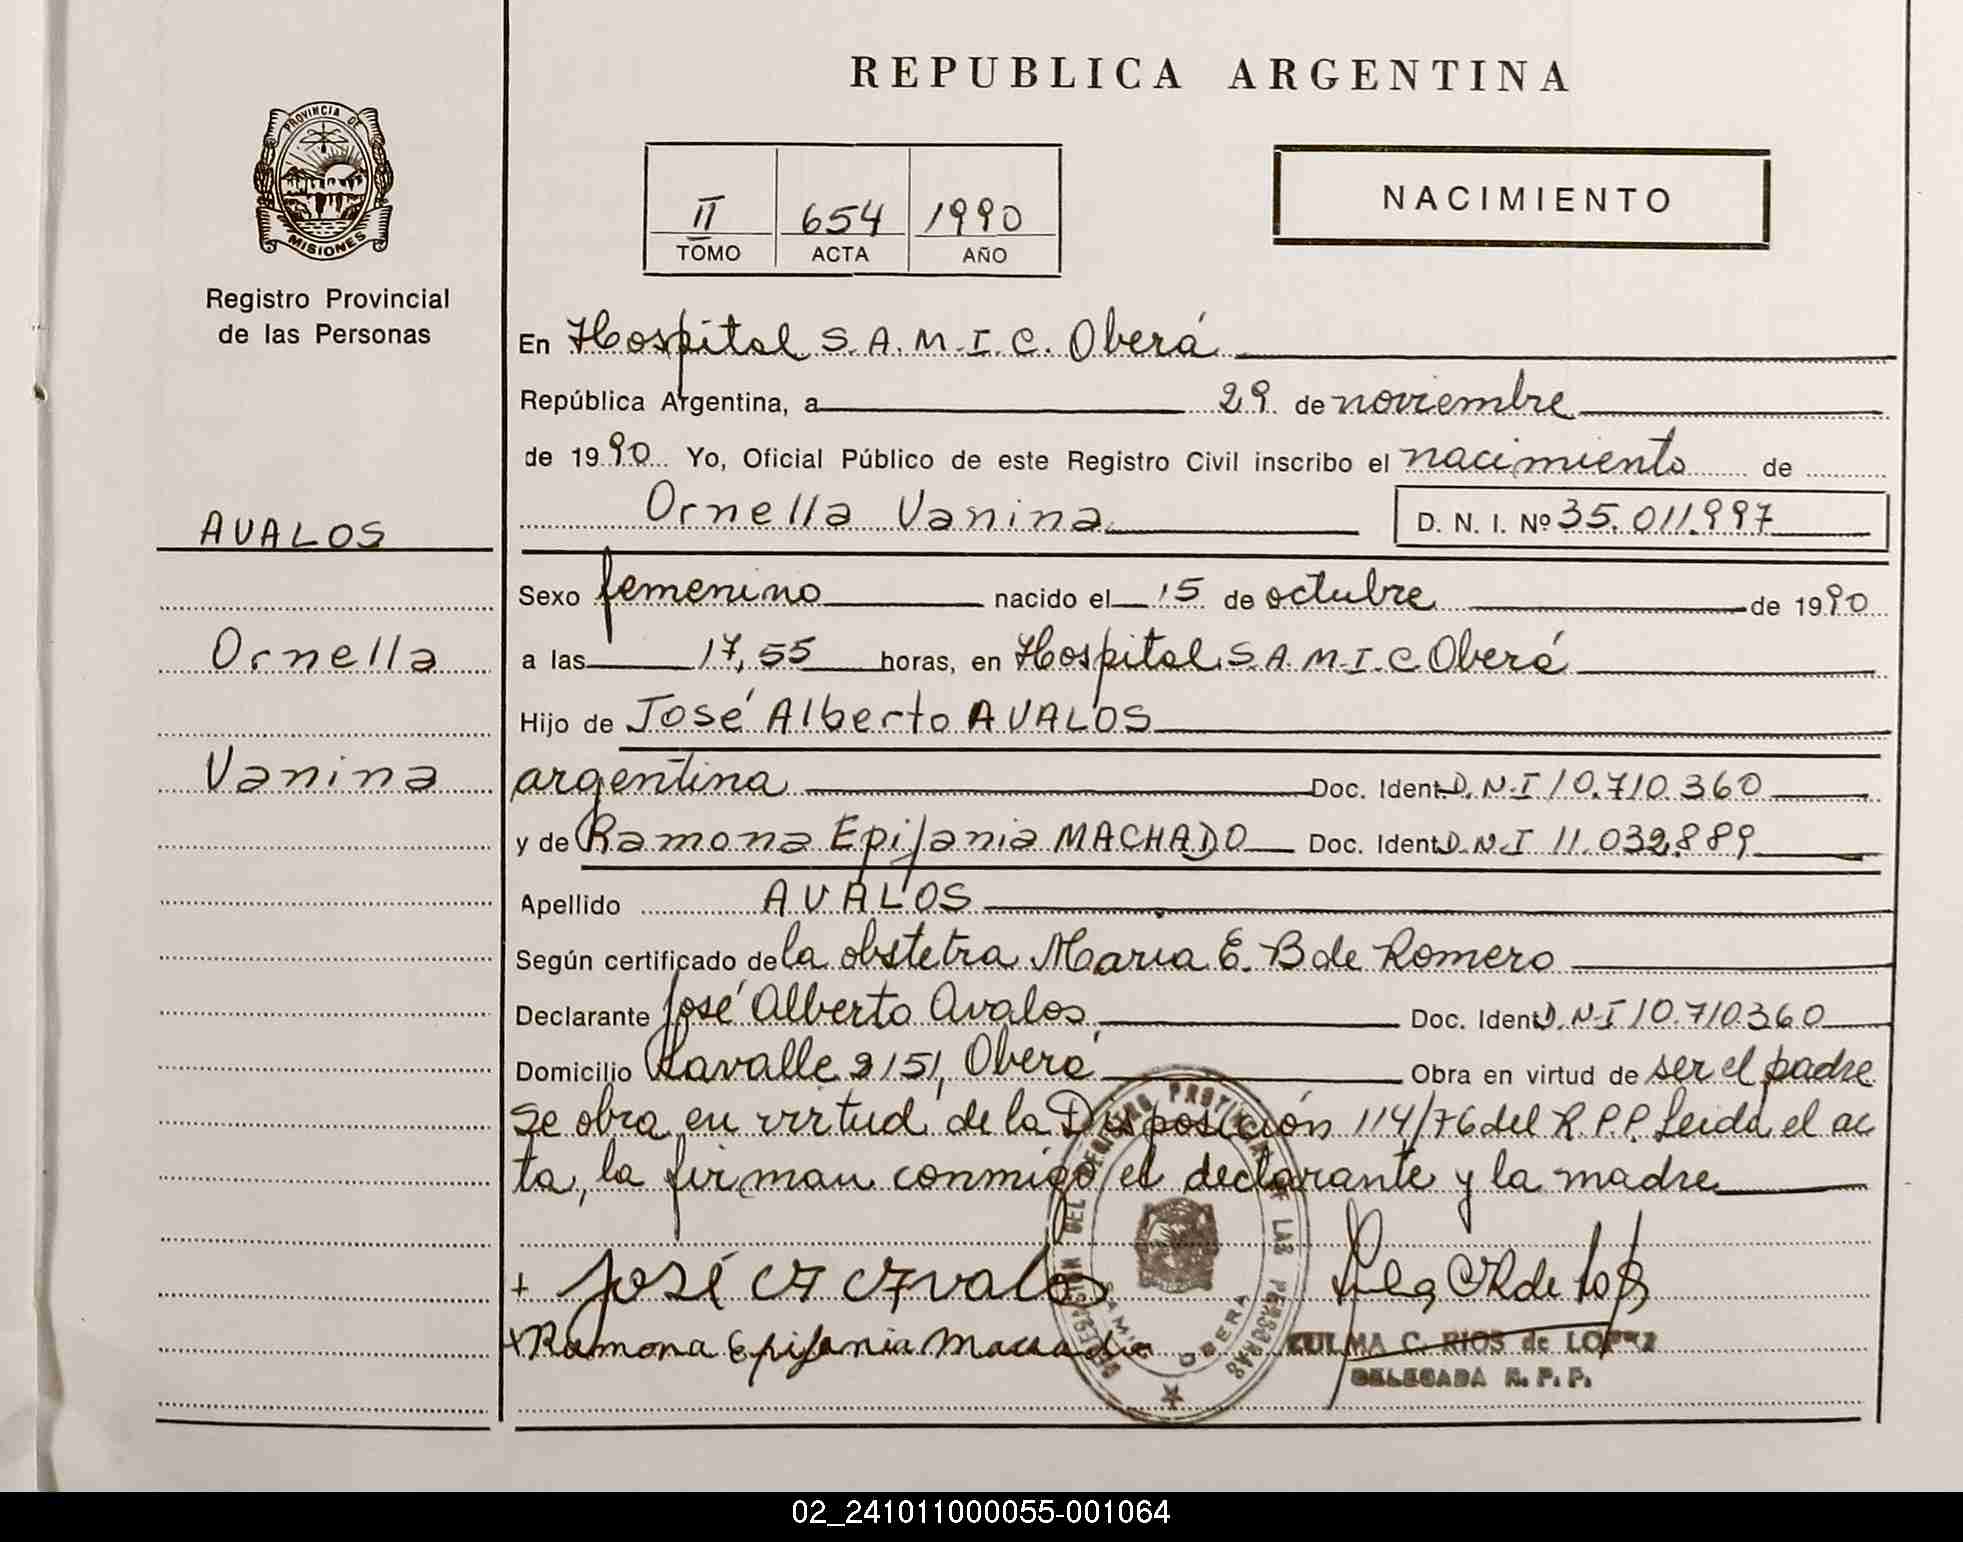 REPUBLICA ARGENTINA
PROVINCIA DE
MISIONES
Registro Provincial
de las Personas
II 654 1990
TOMO ACTA AÑO
NACIMIENTO
En Hospital S.A.M.I.C. Oberá
República Argentina, a 29 de noviembre
de 1990 Yo, Oficial Público de este Registro Civil inscribo el nacimiento de
Ornella Vanina D. N. I. Nº 35.011.997
AVALOS
Ornella
Vanina
Sexo femenino nacido el 15 de octubre de 1990
a las 17,55 horas, en Hospital S.A.M.I.C Oberá
Hijo de José Alberto AVALOS
argentina Doc. Ident. D.N.I 10.710.360
y de Ramona Epifania MACHADO Doc. Ident. D.N.I 11.032.889
Apellido AVALOS
Según certificado de la obstetra Maria E. B de Romero
Declarante José Alberto Avalos Doc. Ident. D.N.I 10.710.360
Domicilio Lavalle 2151, Oberá Obra en virtud de ser el padre
se obra en virtud de la Disposición 114/76 del R.P.P. Leida el ac
ta, la firman conmigo el declarante y la madre
+ José A Avalos
+ Ramona Epifania Machado
ZULMA C. RIOS de LOPEZ
DELEGADA R. P. P.
DELEGACION DEL REGISTRO PROVINCIAL DE LAS PERSONAS
SAMIC OBERA
02_241011000055-001064